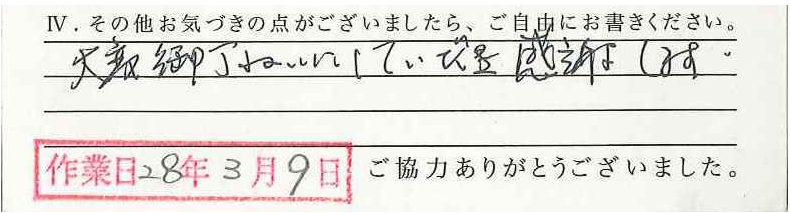 Ⅳ．その他お気づきの点がございましたら、ご自由にお書きください。
大変 丁ねいにして 感謝します．
作業日28年3月9日
ご協力ありがとうございました。